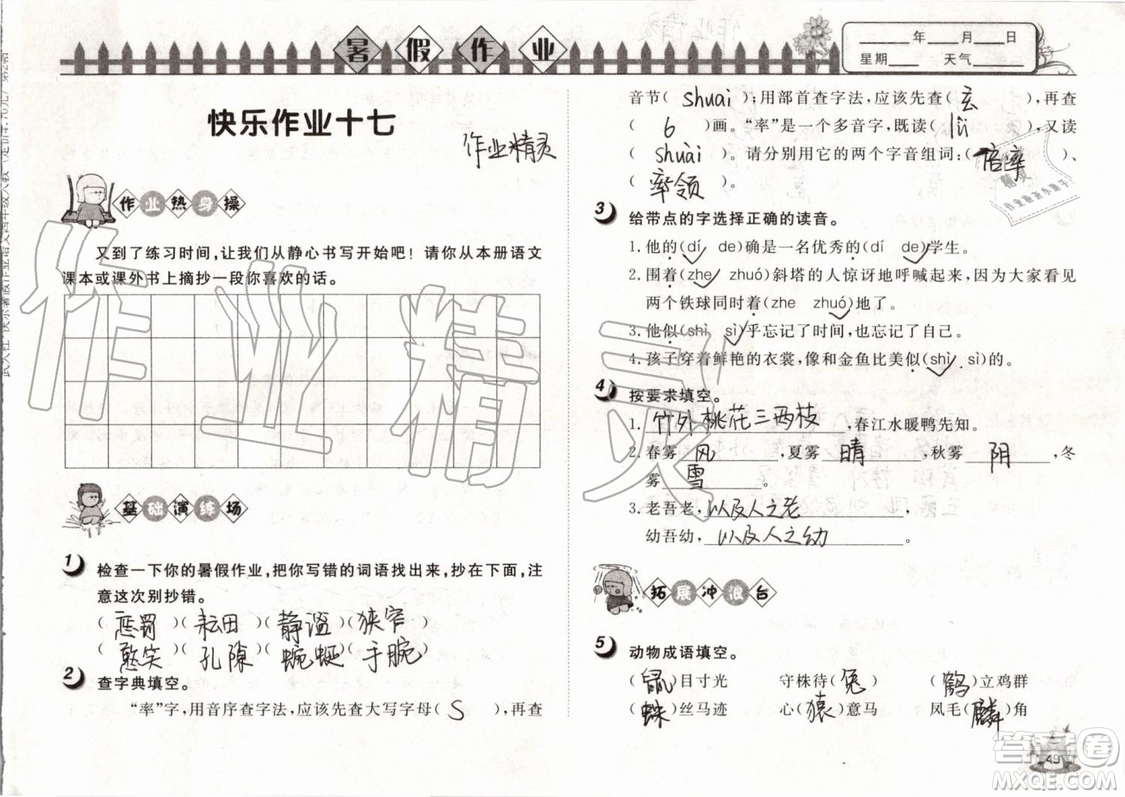 暑假作业
____年____月____日
星期____ 天气____
快乐作业十七
作业精灵
作业热身操
又到了练习时间,让我们从静心书写开始吧!请你从本册语文
课本或课外书上摘抄一段你喜欢的话。
作业精灵
基础演练场
1 检查一下你的暑假作业,把你写错的词语找出来,抄在下面,注
意这次别抄错。
(惩罚)(耘田)(静谧)(狭窄)
(憨笑)(孔隙)(蜿蜒)(手腕)
2 查字典填空。
“率”字,用音序查字法,应该先查大写字母( S ),再查
音节( shuai );用部首查字法,应该先查( 玄 ),再查
( 6 )画。“率”是一个多音字,既读( lǜ ),又读
( shuài )。请分别用它的两个字音组词:( 倍率 )、
( 率领 )
3 给带点的字选择正确的读音。
1. 他的(dí de)确是一名优秀的(dí de)学生。
2. 围着(zhe zhuó)斜塔的人惊讶地呼喊起来,因为大家看见
两个铁球同时着(zhe zhuó)地了。
3. 他似(shì sì)乎忘记了时间,也忘记了自己。
4. 孩子穿着鲜艳的衣裳,像和金鱼比美似(shì sì)的。
4 按要求填空。
1. 竹外桃花三两枝,春江水暖鸭先知。
2. 春雾 风,夏雾 晴,秋雾 阴,冬
雾 雪。
3. 老吾老,以及人之老
幼吾幼,以及人之幼
拓展冲浪台
5 动物成语填空。
(鼠)目寸光 守株待(兔) (鹤)立鸡群
(蛛)丝马迹 心(猿)意马 凤毛(麟)角
49
答案圈
MXQE.COM